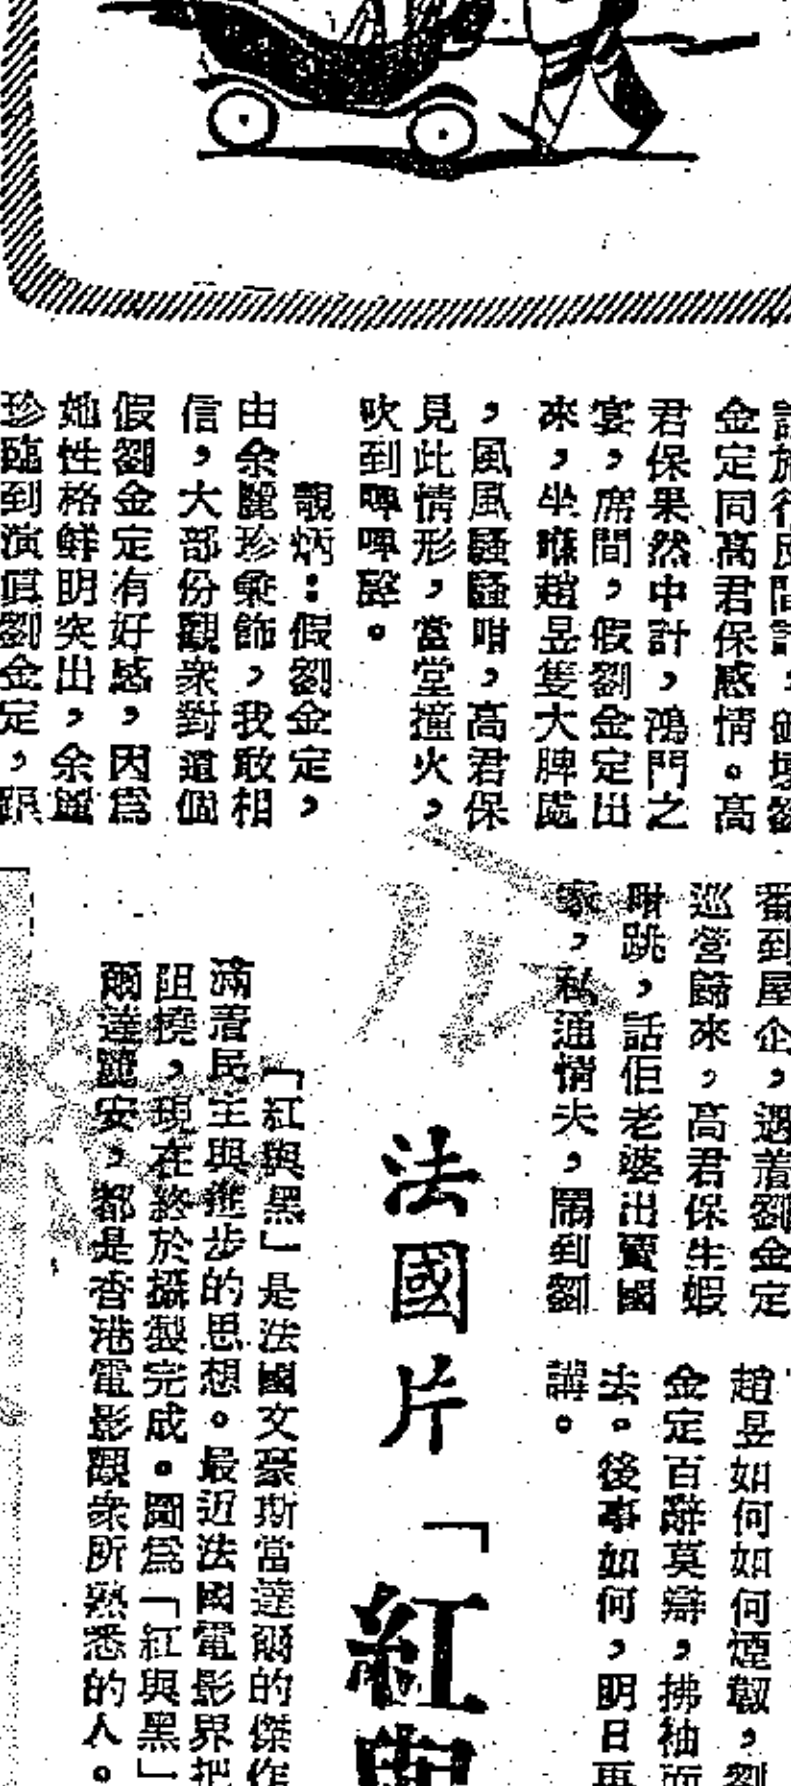 金定同高君保感情。高
君保果然中計，鴻門之
宴，席間，假劉金定出
來，坐喺趙昱隻大脾處
，風風騷騷咁，高君保
見此情形，當堂撞火，
吹到啤啤聲。
靚炳：假劉金定，
由余麗珍乘飾，我敢相
信，大部份觀衆對這個
假劉金定有好感，因爲
她性格鮮明突出，余麗
珍臨到演眞劉金定，
番到屋企，遇着劉金定
巡營歸來，高君保生蝦
咁跳，話佢老婆出賣國
家，私通情夫，鬧到劉
趙昱如何如何煙韌，劉
金定百辭莫辯，拂袖而
法。後事如何，明日再
講。
法國片「紅與
「紅與黑」是法國文豪斯當達爾的傑作
滿着民主與進步的思想。最近法國電影界把
阻撓，現在終於攝製完成。圖爲「紅與黑」
爾達麗安，都是香港電影觀衆所熟悉的人。